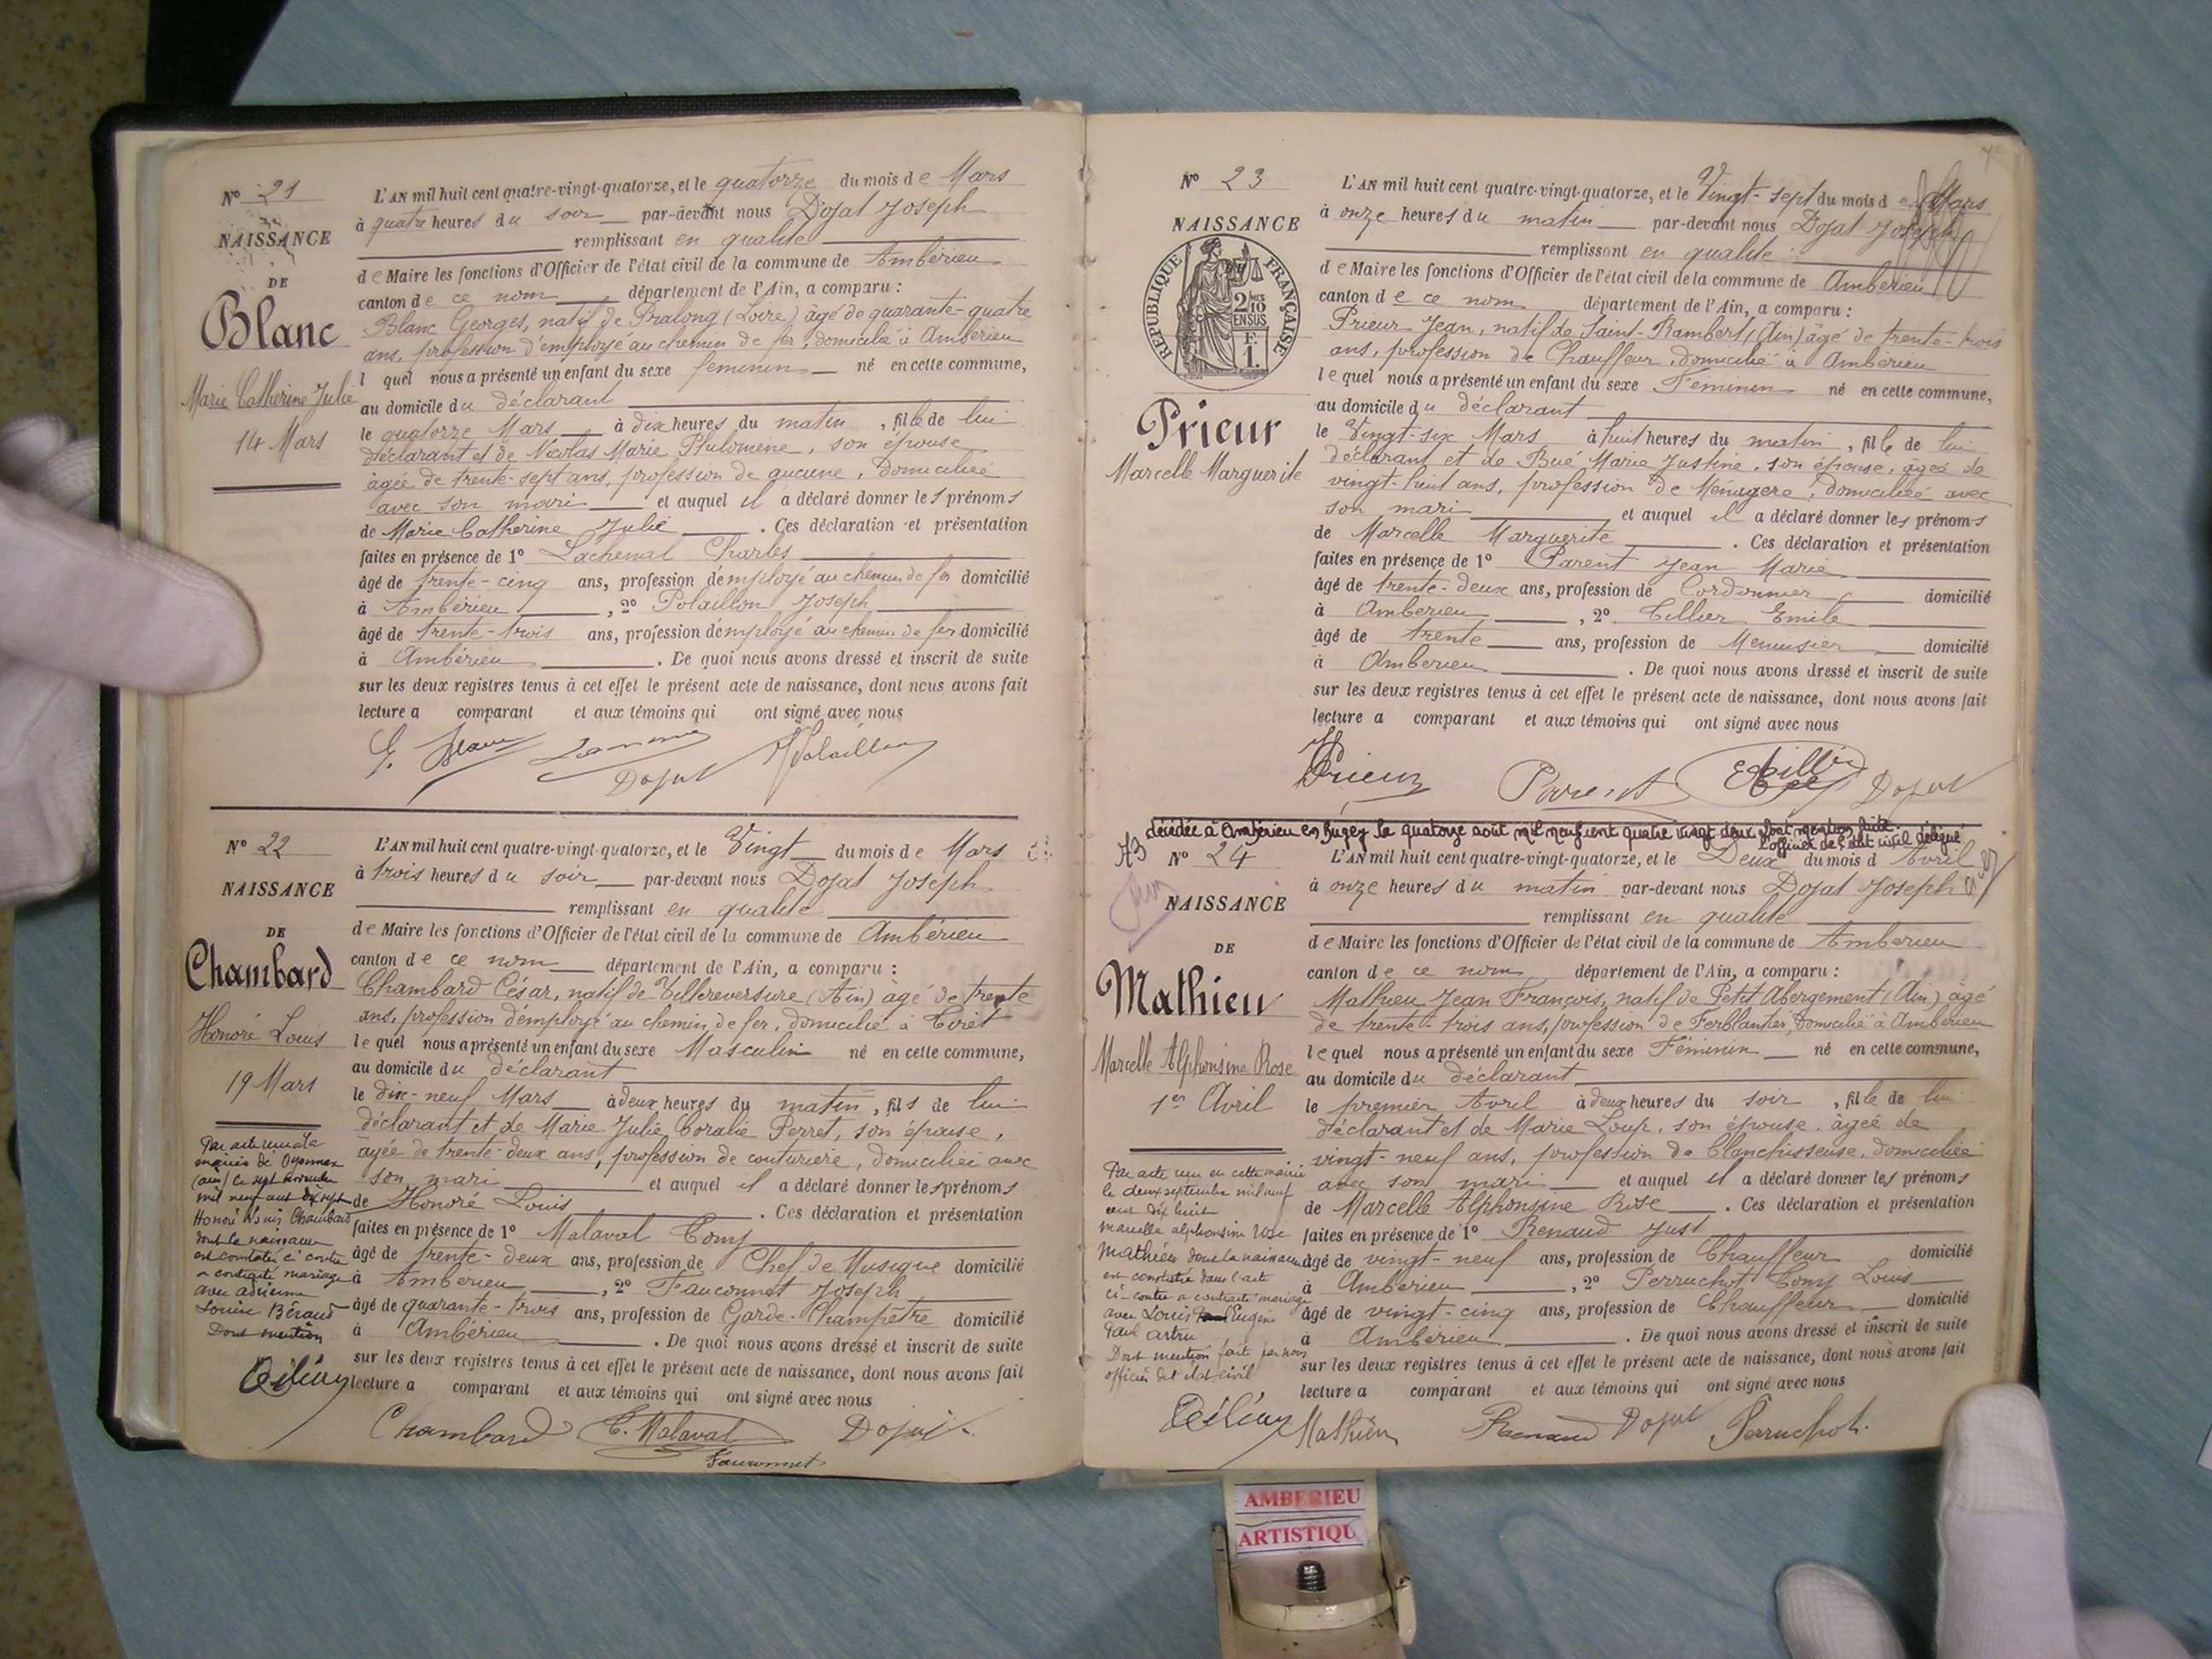 N° 21
NAISSANCE
DE
Blanc
Marie Catherine Julie
14 Mars
L'AN mil huit cent quatre-vingt-quatorze, et le quatorze du mois de Mars
à quatre heures du soir par-devant nous Dojat Joseph
remplissant en qualité
de Maire les fonctions d'Officier de l'état civil de la commune de Ambérieu
canton de ce nom département de l'Ain, a comparu :
Blanc Georges, natif de Pralong (Loire) âgé de quarante-quatre
ans, profession d'employé au chemin de fer, domicilié à Ambérieu
l quel nous a présenté un enfant du sexe féminin né en cette commune,
au domicile du déclarant
le quatorze Mars à dix heures du matin, fille de lui
déclarant et de Nicolas Marie Philomène, son épouse
âgée de trente-sept ans, profession de aucune, domiciliée
avec son mari et auquel il a déclaré donner les prénoms
de Marie Catherine Julie. Ces déclaration et présentation
faites en présence de 1° Lachenal Charles
âgé de trente-cinq ans, profession d'employé au chemin de fer domicilié
à Ambérieu, 2° Polaillon Joseph
âgé de trente-trois ans, profession d'employé au chemin de fer domicilié
à Ambérieu. De quoi nous avons dressé et inscrit de suite
sur les deux registres tenus à cet effet le présent acte de naissance, dont nous avons fait
lecture a comparant et aux témoins qui ont signé avec nous
G. Blanc
Dojat Polaillon
N° 22
NAISSANCE
DE
Chambard
Honoré Louis
19 Mars
Par acte reçu à la
mairie de Oyonnax
(ain) le sept
mil neuf cent dix sept
Honoré Louis Chambard
dont la naissance
est constatée ci contre
a contracté mariage
avec adrienne
Louise Béraud
Dont mention
L'AN mil huit cent quatre-vingt-quatorze, et le Vingt du mois de Mars
à trois heures du soir par-devant nous Dojat Joseph
remplissant en qualité
de Maire les fonctions d'Officier de l'état civil de la commune de Ambérieu
canton de ce nom département de l'Ain, a comparu :
Chambard César, natif de Villereversure (Ain) âgé de trente
ans, profession d'employé au chemin de fer, domicilié à Tiret
le quel nous a présenté un enfant du sexe Masculin né en cette commune,
au domicile du déclarant
le dix-neuf Mars à deux heures du matin, fils de lui
déclarant et de Marie Julie Coralie Perret, son épouse,
âgée de trente-deux ans, profession de couturière, domiciliée avec
son mari et auquel il a déclaré donner les prénoms
de Honoré Louis. Ces déclaration et présentation
faites en présence de 1° Malaval Tony
âgé de trente-deux ans, profession de Chef de Musique domicilié
à Ambérieu, 2° Fauconnet Joseph
âgé de quarante-trois ans, profession de Garde-Champêtre domicilié
à Ambérieu. De quoi nous avons dressé et inscrit de suite
sur les deux registres tenus à cet effet le présent acte de naissance, dont nous avons fait
lecture a comparant et aux témoins qui ont signé avec nous
Chambard T. Malaval Dojat
Fauconnet
N° 23
NAISSANCE
RÉPUBLIQUE FRANÇAISE
2/10 EN SUS
1 F.
Prieur
Marcelle Marguerite
L'AN mil huit cent quatre-vingt-quatorze, et le Vingt-sept du mois de Mars
à onze heures du matin par-devant nous Dojat Joseph
remplissant en qualité
de Maire les fonctions d'Officier de l'état civil de la commune de Ambérieu
canton de ce nom département de l'Ain, a comparu :
Prieur Jean, natif de Saint-Rambert (Ain) âgé de trente-trois
ans, profession de Chauffeur, domicilié à Ambérieu
le quel nous a présenté un enfant du sexe Féminin né en cette commune,
au domicile du déclarant
le Vingt-six Mars à huit heures du matin, fille de lui
déclarant et de Bué Marie Justine, son épouse, âgée de
vingt-huit ans, profession de Ménagère, domiciliée avec
son mari et auquel il a déclaré donner les prénoms
de Marcelle Marguerite. Ces déclaration et présentation
faites en présence de 1° Parent Jean Marie
âgé de trente-deux ans, profession de Cordonnier domicilié
à Ambérieu, 2° Tillier Emile
âgé de trente ans, profession de Menuisier domicilié
à Ambérieu. De quoi nous avons dressé et inscrit de suite
sur les deux registres tenus à cet effet le présent acte de naissance, dont nous avons fait
lecture a comparant et aux témoins qui ont signé avec nous
Prieur Parent E Tillier Dojat
décédée à Ambérieu en Bugey le quatorze août mil neuf cent quatre vingt deux Dont mention faite
l'officier de l'état civil délégué
N° 24
NAISSANCE
DE
Mathieu
Marcelle Alphonsine Rose
1er Avril
Par acte reçu en cette mairie
le deux septembre mil neuf
cent dix huit
marcelle alphonsine Rose
Mathieu dont la naissance
est constatée dans l'acte
ci-contre a contracté mariage
avec Louis Eugène
Paul Artru
Dont mention faite par nous
officier de l'état civil
L'AN mil huit cent quatre-vingt-quatorze, et le Deux du mois d Avril
à onze heures du matin par-devant nous Dojat Joseph
remplissant en qualité
de Maire les fonctions d'Officier de l'état civil de la commune de Ambérieu
canton de ce nom département de l'Ain, a comparu :
Mathieu Jean François, natif de Petit Abergement (Ain) âgé
de trente-trois ans, profession de Ferblantier, domicilié à Ambérieu
le quel nous a présenté un enfant du sexe Féminin né en cette commune,
au domicile du déclarant
le premier Avril à deux heures du soir, fille de lui
déclarant et de Marie Loup, son épouse, âgée de
vingt-neuf ans, profession de blanchisseuse, domiciliée
avec son mari et auquel il a déclaré donner les prénoms
de Marcelle Alphonsine Rose. Ces déclaration et présentation
faites en présence de 1° Renaud Just
âgé de vingt-neuf ans, profession de Chauffeur domicilié
à Ambérieu, 2° Perruchot Tony Louis
âgé de vingt-cinq ans, profession de Chauffeur domicilié
à Ambérieu. De quoi nous avons dressé et inscrit de suite
sur les deux registres tenus à cet effet le présent acte de naissance, dont nous avons fait
lecture a comparant et aux témoins qui ont signé avec nous
Mathieu Renaud Dojat Perruchot
AMBERIEU
ARTISTIQU